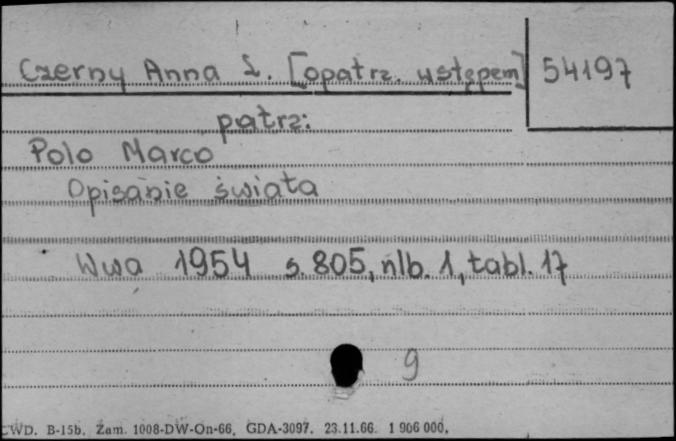 Czerny Anna L. [opatrz. wstępem] 54197
patrz:
Polo Marco
Opisanie świata
Wwa 1954 s. 805, nlb. 1, tabl. 17
9
CWD. B-15b. Zam. 1008-DW-On-66. GDA-3097. 23.11.66. 1 906 000.